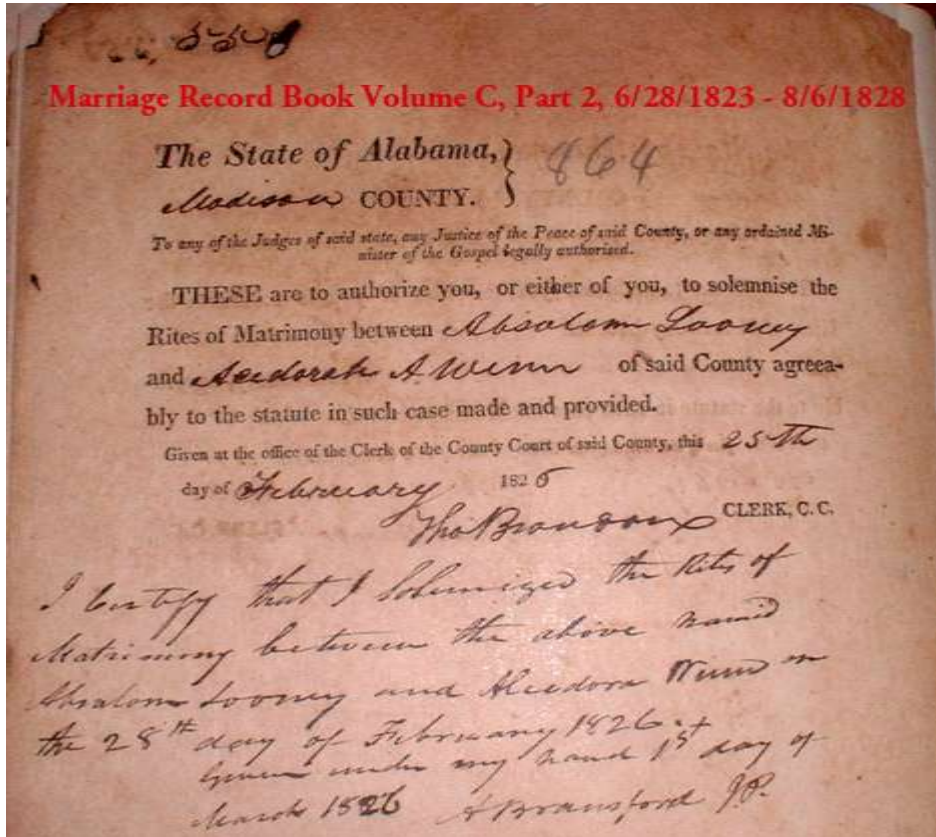 Marriage Record Book Volume C, Part 2, 6/28/1823 - 8/6/1828
The State of Alabama,} 864
Madison COUNTY.
To any of the Judges of said state, any Justice of the Peace of said County, or any ordained Mi-
nister of the Gospel legally authorised.
THESE are to authorize you, or either of you, to solemnise the
Rites of Matrimony between Absalom Looney
and A. Winn of said County agreea-
bly to the statute in such case made and provided.
Given at the office of the Clerk of the County Court of said County, this 25th
day of February 1826
Tho Brandon CLERK, C. C.
I Certify that I Solemnized the Rits of
Matrimony between the above named
Absalom Looney and Winn on
the 28th day of February 1826.
Given under my hand 1st day of
March 1826 A Bransford J.P.